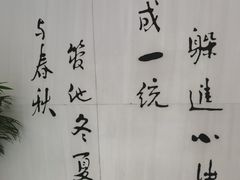 躲進小
成一统
管他冬夏
与春秋